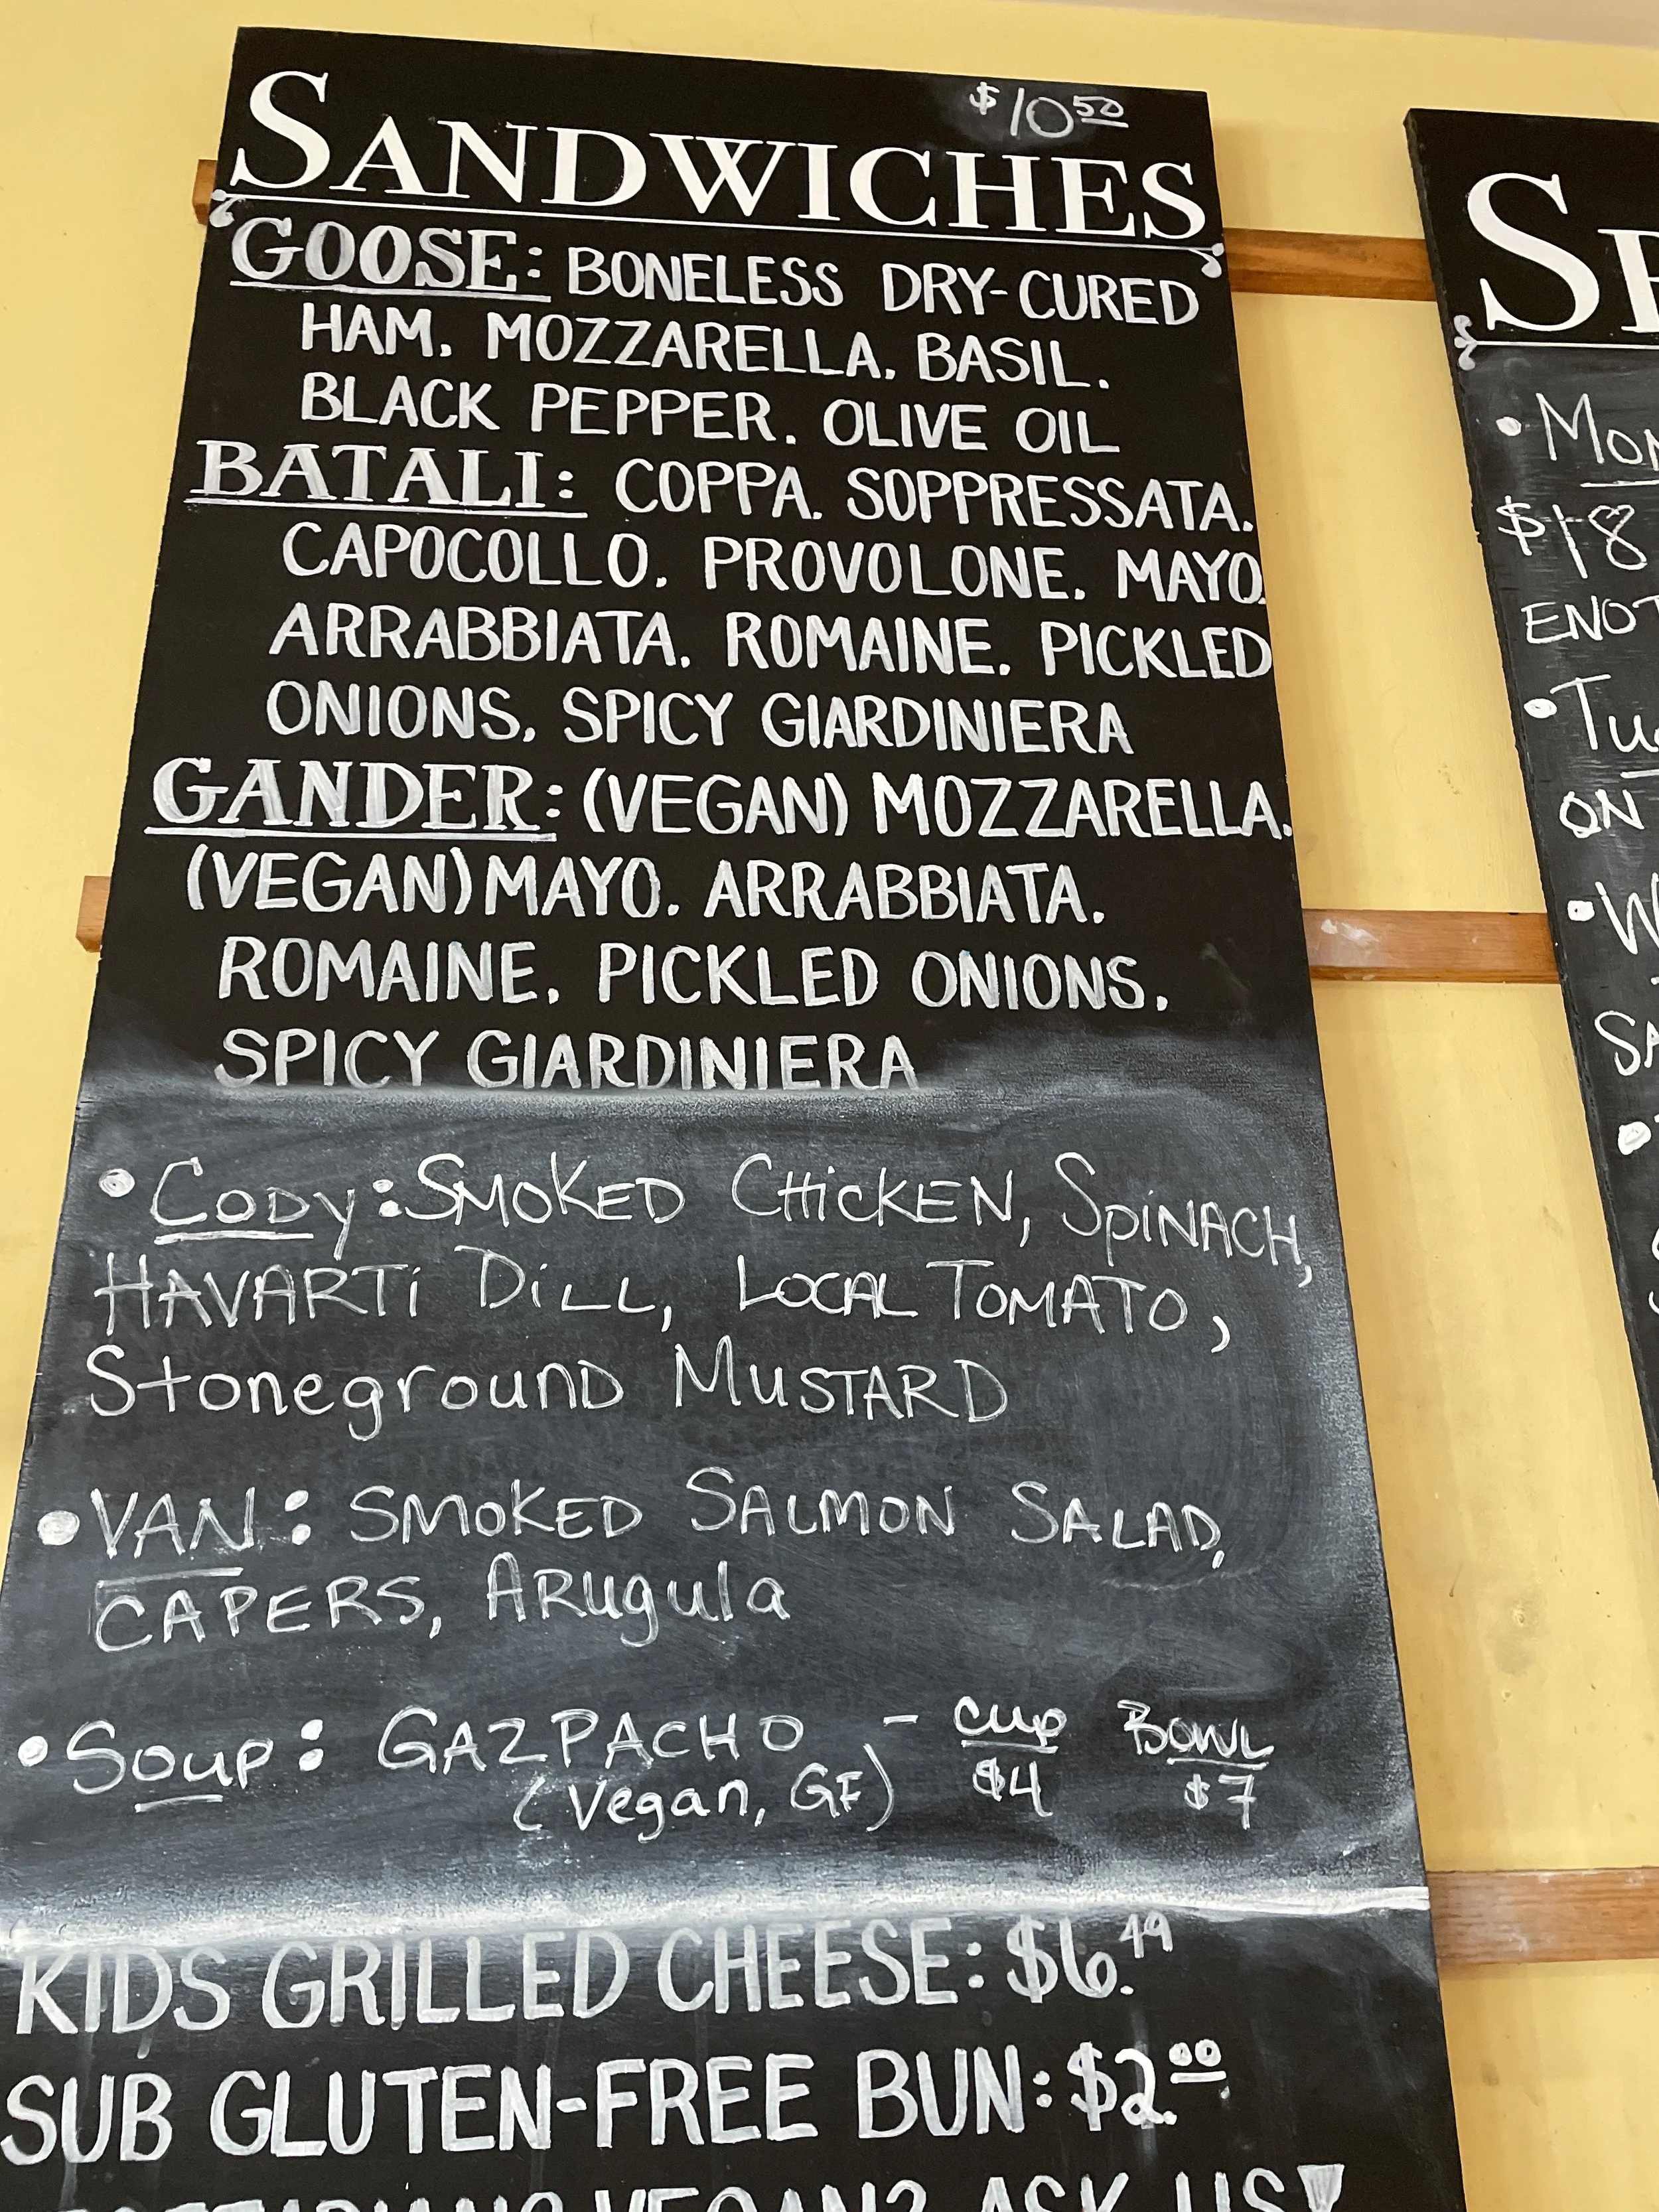 $10.50
SANDWICHES
GOOSE: BONELESS DRY-CURED
HAM. MOZZARELLA. BASIL.
BLACK PEPPER. OLIVE OIL
BATALI: COPPA. SOPPRESSATA.
CAPOCOLLO. PROVOLONE. MAYO.
ARRABBIATA. ROMAINE. PICKLED
ONIONS. SPICY GIARDINIERA
GANDER: (VEGAN) MOZZARELLA.
(VEGAN) MAYO. ARRABBIATA.
ROMAINE. PICKLED ONIONS.
SPICY GIARDINIERA
• CODY: SMOKED CHICKEN, SPINACH,
HAVARTI DILL, LOCAL TOMATO,
Stoneground MUSTARD
• VAN: SMOKED SALMON SALAD,
CAPERS, Arugula
• Soup: GAZPACHO - cup BOWL
(Vegan, GF) $4 $7
KIDS GRILLED CHEESE: $6.49
SUB GLUTEN-FREE BUN: $2.00
VEGAN? ASK US!
$18
ON